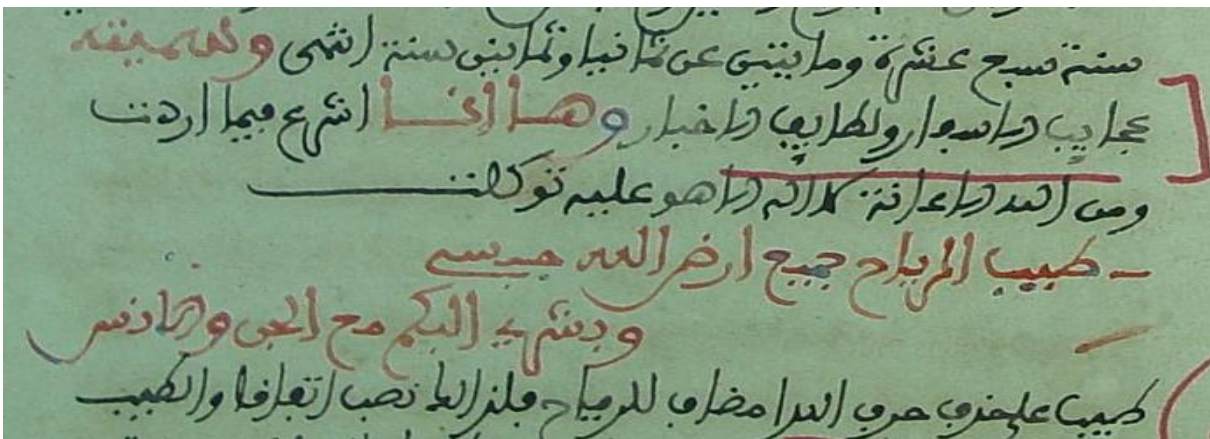 سنة سبع عشرة ومايتين عن ثمانيا وثمانين سنة انتهى وسميته
عجايب الاسفار ولطايف الاخبار وها انا اشرع فيما اردت
ومن الله الاعانة لا اله الا هو عليه توكلت
طبيب الرياح جميع ارض الله
وبشرى البكم مع الجن والانس
طبيب على حذف حرف الندا مضاف للرياح فلذا نصب اتفاقا والطبيب